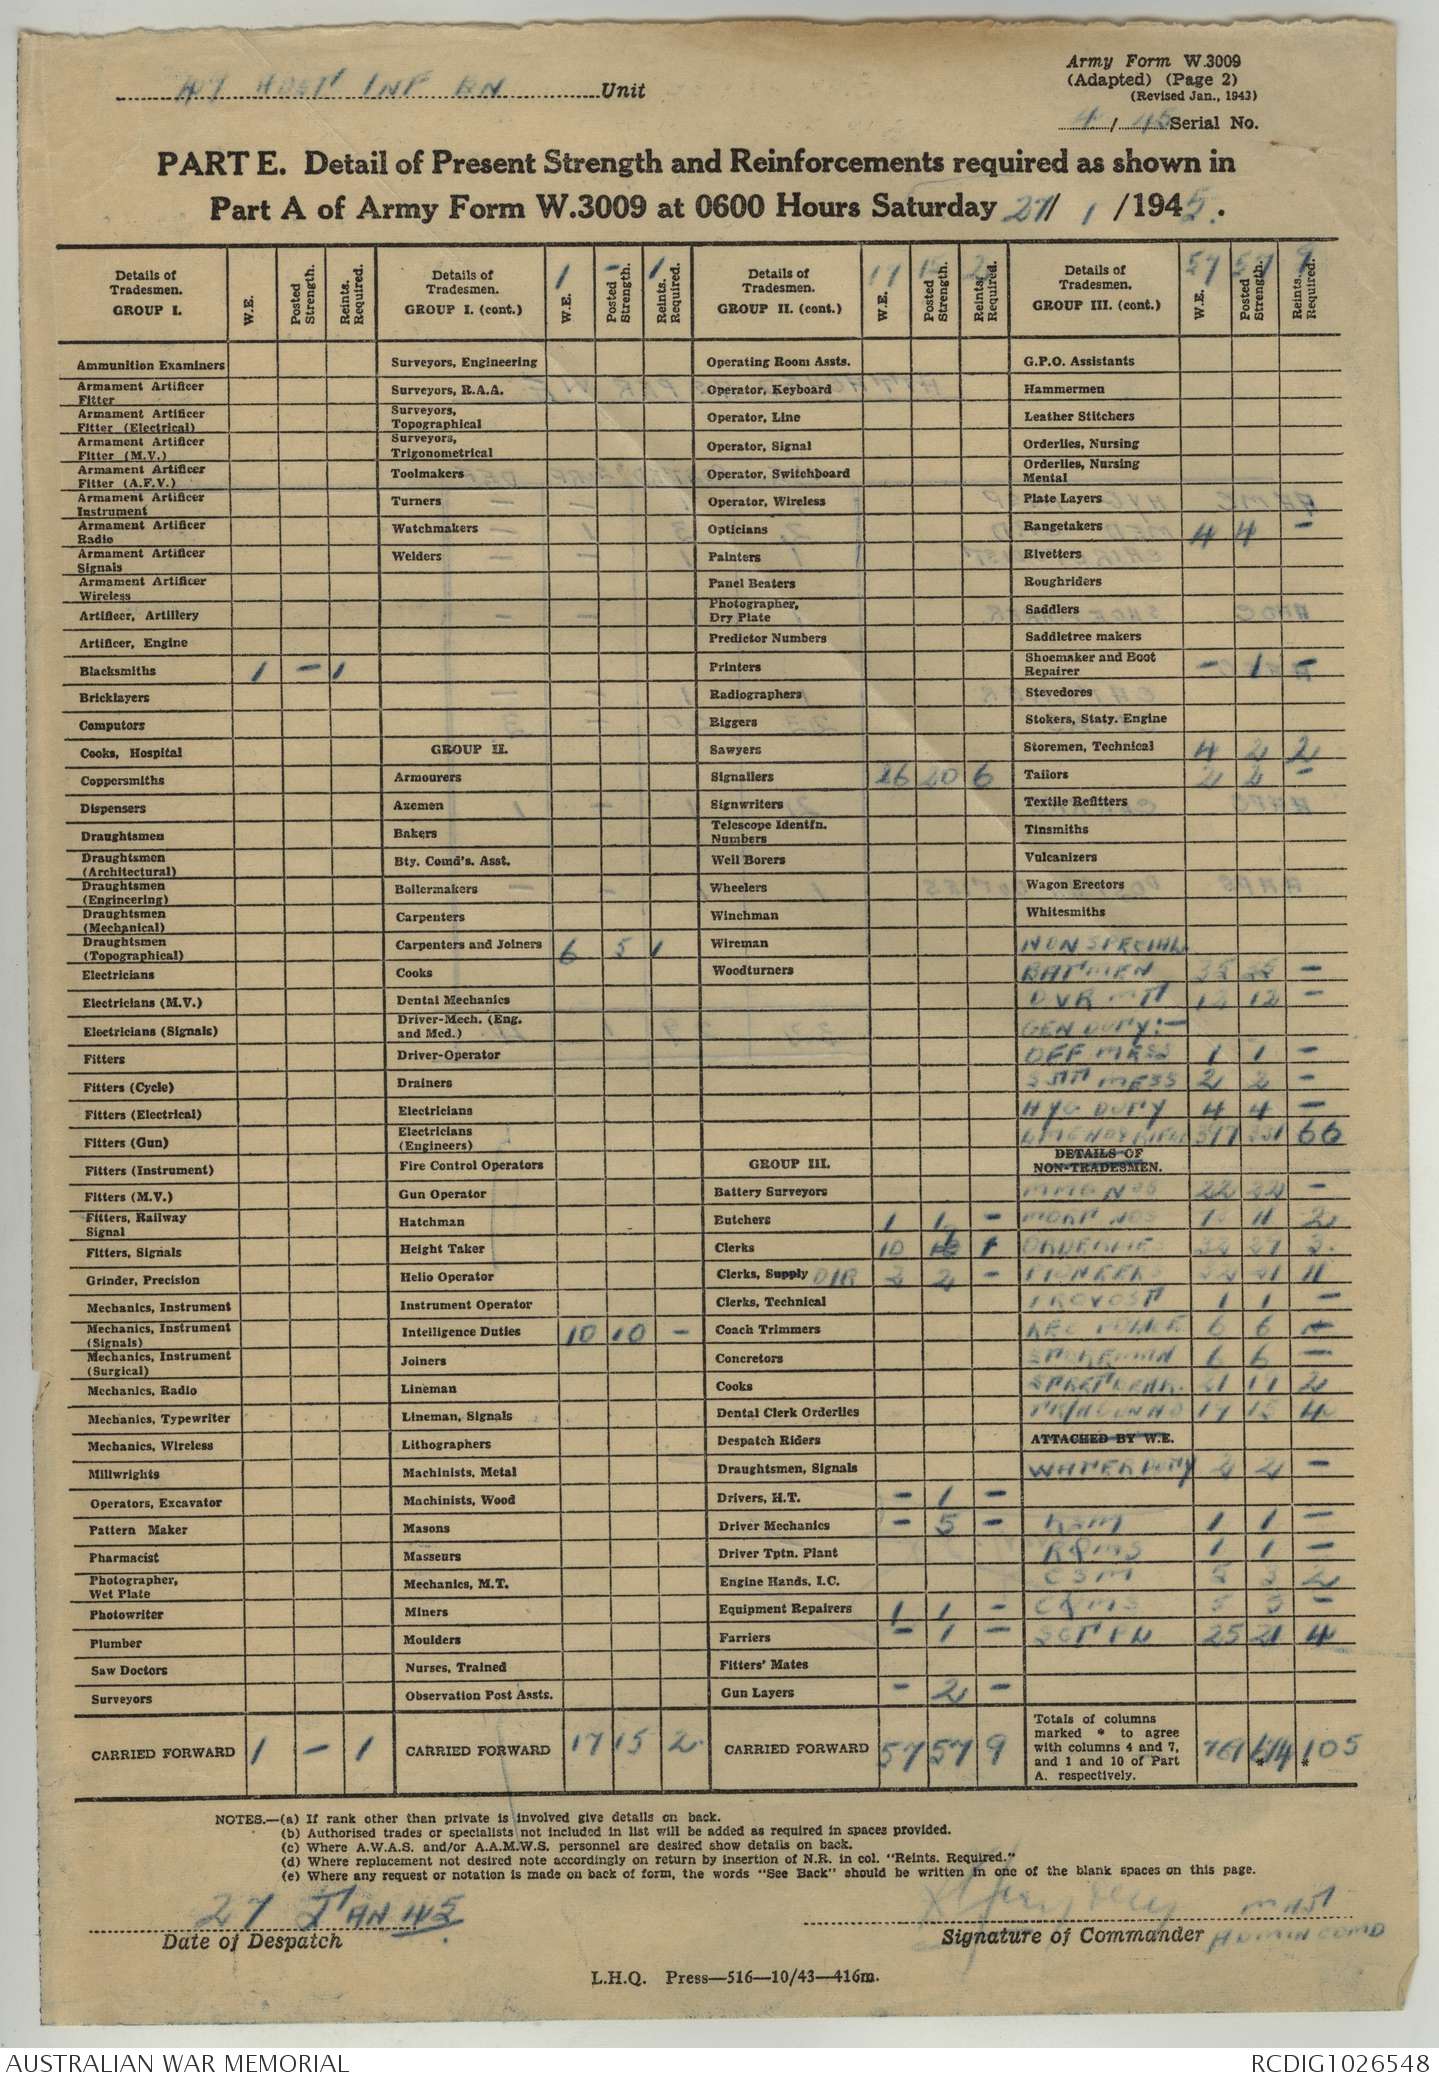 47 AUST INF BN Unit
Army Form W.3009
(Adapted) (Page 2)
(Revised Jan., 1943)
4 / 45 Serial No.
PART E. Detail of Present Strength and Reinforcements required as shown in
Part A of Army Form W.3009 at 0600 Hours Saturday 27/ 1 /1945.
Details of Tradesmen. GROUP I. W.E. Posted Strength. Reints. Required.
Ammunition Examiners
Armament Artificer Fitter
Armament Artificer Fitter (Electrical)
Armament Artificer Fitter (M.V.)
Armament Artificer Fitter (A.F.V.)
Armament Artificer Instrument
Armament Artificer Radio
Armament Artificer Signals
Armament Artificer Wireless
Artificer, Artillery
Artificer, Engine
Blacksmiths 1 - 1
Bricklayers
Computors
Cooks, Hospital
Coppersmiths
Dispensers
Draughtsmen
Draughtsmen (Architectural)
Draughtsmen (Engineering)
Draughtsmen (Mechanical)
Draughtsmen (Topographical)
Electricians
Electricians (M.V.)
Electricians (Signals)
Fitters
Fitters (Cycle)
Fitters (Electrical)
Fitters (Gun)
Fitters (Instrument)
Fitters (M.V.)
Fitters, Railway Signal
Fitters, Signals
Grinder, Precision
Mechanics, Instrument
Mechanics, Instrument (Signals)
Mechanics, Instrument (Surgical)
Mechanics, Radio
Mechanics, Typewriter
Mechanics, Wireless
Millwrights
Operators, Excavator
Pattern Maker
Pharmacist
Photographer, Wet Plate
Photowriter
Plumber
Saw Doctors
Surveyors
CARRIED FORWARD 1 - 1
Details of Tradesmen. GROUP I. (cont.) 1 - 1 W.E. Posted Strength. Reints. Required.
Surveyors, Engineering
Surveyors, R.A.A.
Surveyors, Topographical
Surveyors, Trigonometrical
Toolmakers
Turners
Watchmakers
Welders
GROUP II.
Armourers
Axemen
Bakers
Bty. Comd's. Asst.
Boilermakers
Carpenters
Carpenters and Joiners 6 5 1
Cooks
Dental Mechanics
Driver-Mech. (Eng. and Med.)
Driver-Operator
Drainers
Electricians
Electricians (Engineers)
Fire Control Operators
Gun Operator
Hatchman
Height Taker
Helio Operator
Instrument Operator
Intelligence Duties 10 10 -
Joiners
Lineman
Lineman, Signals
Lithographers
Machinists, Metal
Machinists, Wood
Masons
Masseurs
Mechanics, M.T.
Miners
Moulders
Nurses, Trained
Observation Post Assts.
CARRIED FORWARD 17 15 2
Details of Tradesmen. GROUP II. (cont.) 17 15 2 W.E. Posted Strength. Reints. Required.
Operating Room Assts.
Operator, Keyboard
Operator, Line
Operator, Signal
Operator, Switchboard
Operator, Wireless
Opticians
Painters
Panel Beaters
Photographer, Dry Plate
Predictor Numbers
Printers
Radiographers
Riggers
Sawyers
Signallers 26 20 6
Signwriters
Telescope Identfn. Numbers
Well Borers
Wheelers
Winchman
Wireman
Woodturners
GROUP III.
Battery Surveyors
Butchers 1 1 -
Clerks 10 1
Clerks, Supply DIR 2 2 -
Clerks, Technical
Coach Trimmers
Concretors
Cooks
Dental Clerk Orderlies
Despatch Riders
Draughtsmen, Signals
Drivers, H.T. - 1 -
Driver Mechanics - 5 -
Driver Tptn. Plant
Engine Hands, I.C.
Equipment Repairers 1 1 -
Farriers - 1 -
Fitters' Mates
Gun Layers - 2 -
CARRIED FORWARD 57 57 9
Details of Tradesmen. GROUP III. (cont.) 57 57 9 W.E. Posted Strength. Reints. Required.
G.P.O. Assistants
Hammermen
Leather Stitchers
Orderlies, Nursing
Orderlies, Nursing Mental
Plate Layers
Rangetakers 4 4 -
Rivetters
Roughriders
Saddlers
Saddletree makers
Shoemaker and Boot Repairer - 1 -
Stevedores
Stokers, Staty. Engine
Storemen, Technical 4 2 2
Tailors 2 2 -
Textile Refitters
Tinsmiths
Vulcanizers
Wagon Erectors
Whitesmiths
NON SPECIAL
BATMEN 35 35 -
DVR MT 12 12 -
GEN DUTY:-
OFF MESS 1 1 -
SJT MESS 2 2 -
HYG DUTY 4 4 -
66
DETAILS OF NON-TRADESMEN.
MMG NOS 22 22 -
MORT NOS 11 2
ORDERLIES 27
PIONEERS 21 11
PROVOST 1 1 -
6 6
6 6 -
21 19 2
19 15 4
ATTACHED BY W.E.
WATER DUTY 2 2 -
RSM 1 1 -
RQMS 1 1 -
CSM 5 3 2
CQMS 5 5 -
25 21 4
Totals of columns marked * to agree with columns 4 and 7, and 1 and 10 of Part A. respectively. 761 674 * 105 *
NOTES.—(a) If rank other than private is involved give details on back.
(b) Authorised trades or specialists not included in list will be added as required in spaces provided.
(c) Where A.W.A.S. and/or A.A.M.W.S. personnel are desired show details on back.
(d) Where replacement not desired note accordingly on return by insertion of N.R. in col. "Reints. Required."
(e) Where any request or notation is made on back of form, the words "See Back" should be written in one of the blank spaces on this page.
27 JAN 45
Date of Despatch
MAJ
Signature of Commander ADMIN COMD
L.H.Q. Press—516—10/43—416m.
AUSTRALIAN WAR MEMORIAL
RCDIG1026548